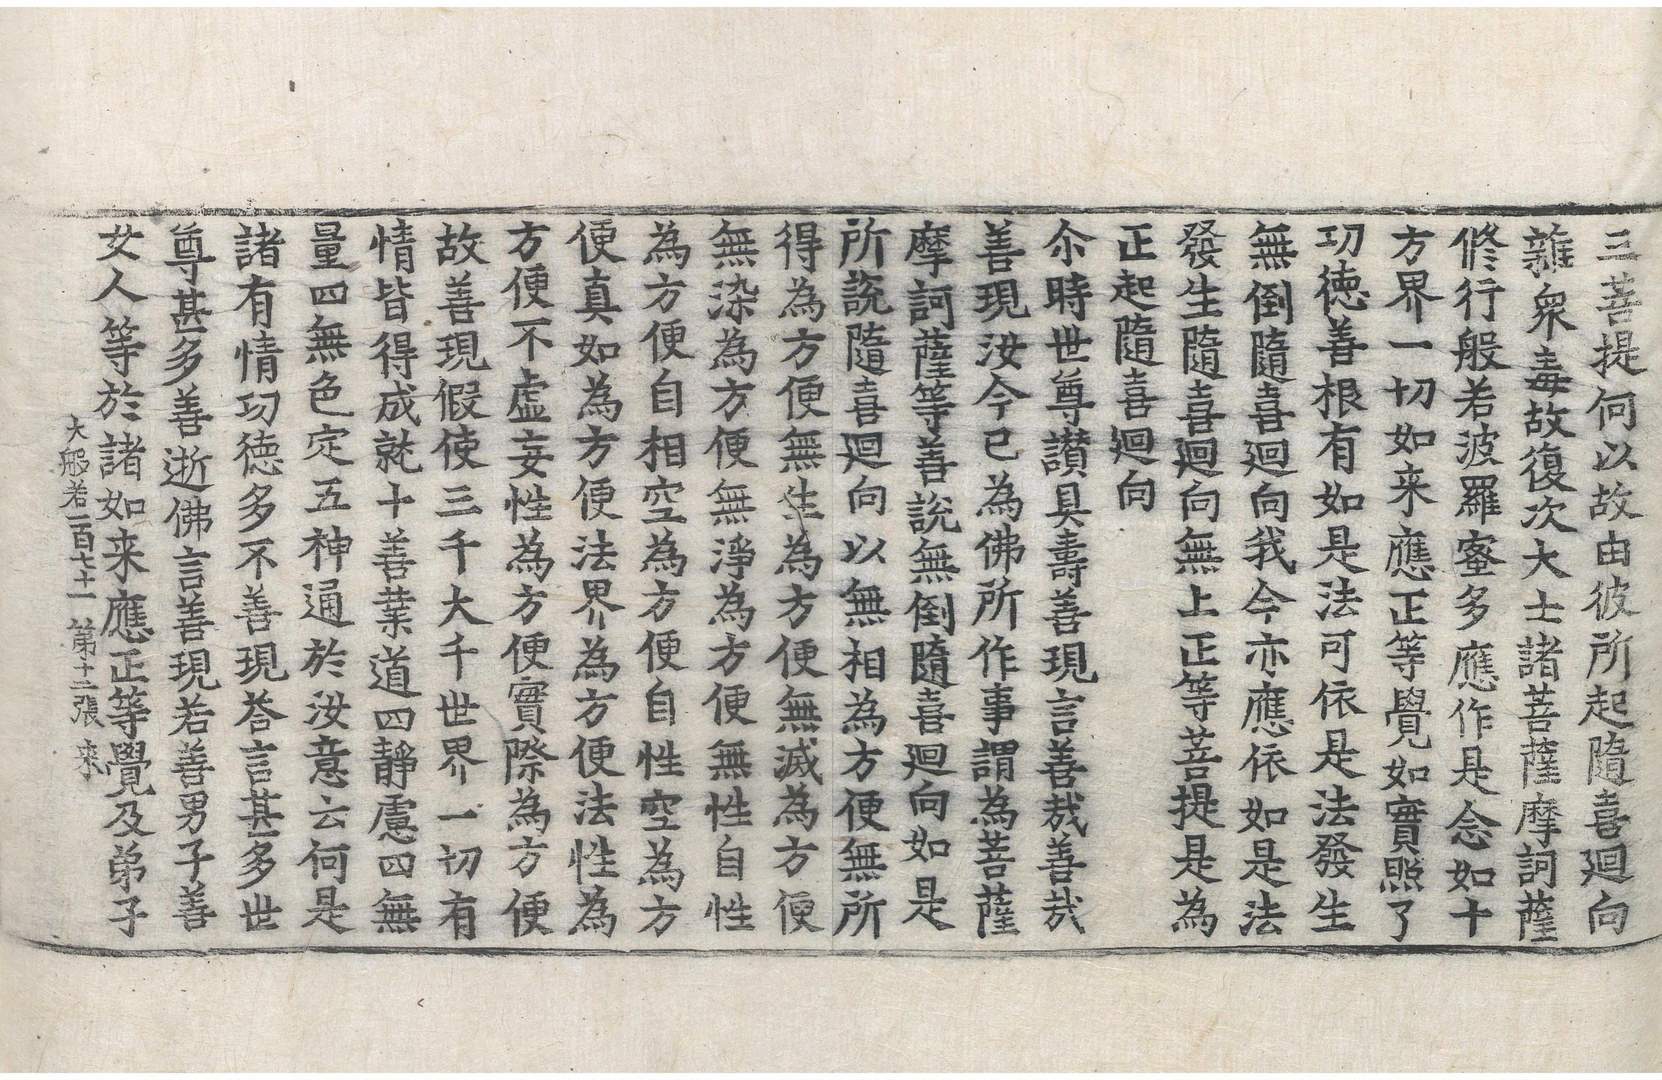 三菩提何以故由彼所起隨喜迴向
雜衆毒故復次大士諸菩薩摩訶薩
修行般若波羅蜜多應作是念如十
方界一切如来應正等覺如實照了
功德善根有如是法可依是法發生
無倒隨喜迴向我今亦應依如是法
發生隨喜迴向無上正等菩提是為
正起隨喜迴向
尒時世尊讃具壽善現言善哉善哉
善現汝今已為佛所作事謂為菩薩
摩訶薩等善說無倒隨喜迴向如是
所說隨喜迴向以無相為方便無所
得為方便無生為方便無滅為方便
無染為方便無淨為方便無性自性
為方便自相空為方便自性空為方
便真如為方便法界為方便法性為
方便不虛妄性為方便實際為方便
故善現假使三千大千世界一切有
情皆得成就十善業道四靜慮四無
量四無色定五神通於汝意云何是
諸有情功德多不善現荅言甚多世
尊甚多善逝佛言善現若善男子善
女人等於諸如来應正等覺及弟子
大般若一百七十一 第十二張 来